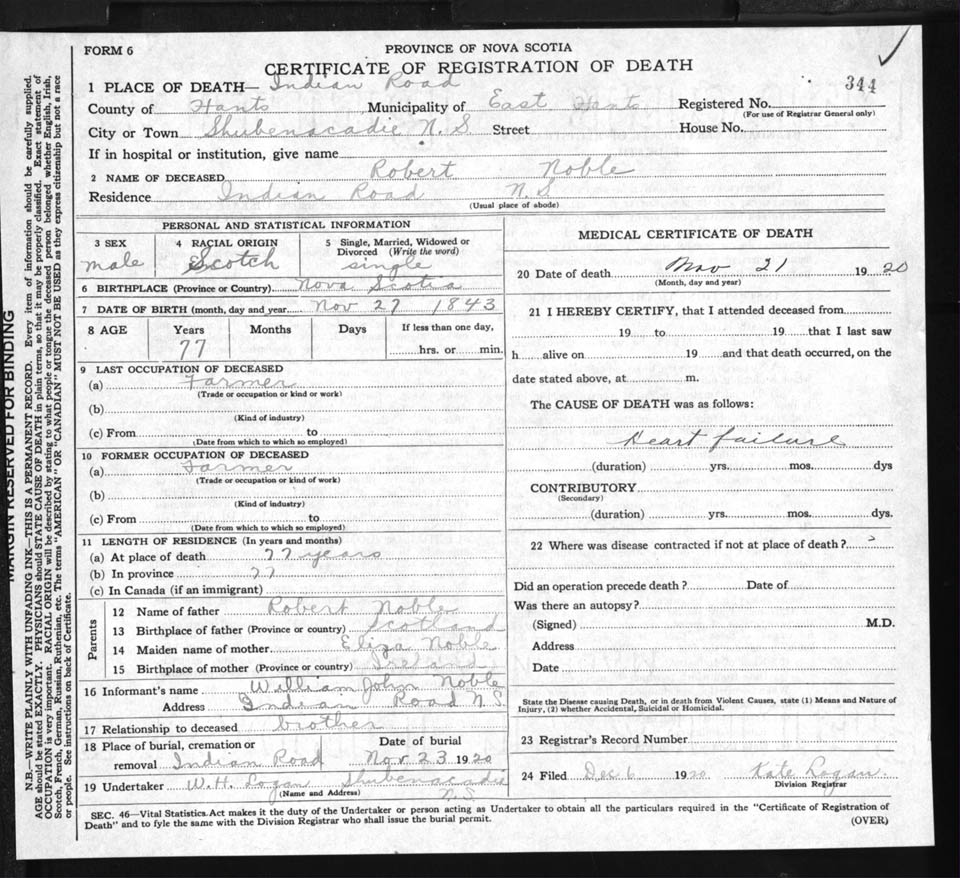 FORM 6
PROVINCE OF NOVA SCOTIA
CERTIFICATE OF REGISTRATION OF DEATH
344
1 PLACE OF DEATH— Indian Road
County of Hants Municipality of East Hants Registered No.
(For use of Registrar General only)
City or Town Shubenacadie N.S Street House No.
If in hospital or institution, give name
2 NAME OF DECEASED Robert Noble
Residence Indian Road N.S
(Usual place of abode)
PERSONAL AND STATISTICAL INFORMATION
3 SEX 4 RACIAL ORIGIN 5 Single, Married, Widowed or
Divorced (Write the word)
male Scotch single
6 BIRTHPLACE (Province or Country) Nova Scotia
7 DATE OF BIRTH (month, day and year) Nov 27 1843
8 AGE Years Months Days If less than one day,
77 hrs. or min.
9 LAST OCCUPATION OF DECEASED
(a) Farmer
(Trade or occupation or kind or work)
(b)
(Kind of industry)
(c) From to
(Date from which to which so employed)
10 FORMER OCCUPATION OF DECEASED
(a) Farmer
(Trade or occupation or kind of work)
(b)
(Kind of industry)
(c) From to
(Date from which to which so employed)
11 LENGTH OF RESIDENCE (In years and months)
(a) At place of death 77 years
(b) In province 77
(c) In Canada (if an immigrant)
Parents
12 Name of father Robert Noble
13 Birthplace of father (Province or country) Scotland
14 Maiden name of mother Eliza Noble
15 Birthplace of mother (Province or country) Ireland
16 Informant's name William John Noble
Address Indian Road N.S.
17 Relationship to deceased brother
18 Place of burial, cremation or Date of burial
removal Indian Road Nov 23 1920
19 Undertaker W.H. Logan Shubenacadie
(Name and Address) N.S.
MEDICAL CERTIFICATE OF DEATH
20 Date of death Nov 21 1920
(Month, day and year)
21 I HEREBY CERTIFY, that I attended deceased from
19 to 19 that I last saw
h alive on 19 and that death occurred, on the
date stated above, at m.
The CAUSE OF DEATH was as follows:
Heart failure
(duration) yrs. mos. dys
CONTRIBUTORY
(Secondary)
(duration) yrs. mos. dys.
22 Where was disease contracted if not at place of death?
Did an operation precede death? Date of
Was there an autopsy?
(Signed) M.D.
Address
Date
State the Disease causing Death, or in death from Violent Causes, state (1) Means and Nature of
Injury, (2) whether Accidental, Suicidal or Homicidal.
23 Registrar's Record Number
24 Filed Dec 6 1920 Kate Logan
Division Registrar
SEC. 46—Vital Statistics Act makes it the duty of the Undertaker or person acting as Undertaker to obtain all the particulars required in the "Certificate of Registration of
Death" and to fyle the same with the Division Registrar who shall issue the burial permit.
(OVER)
MARGIN RESERVED FOR BINDING
N.B.—WRITE PLAINLY WITH UNFADING INK—THIS IS A PERMANENT RECORD. Every item of information should be carefully supplied.
AGE should be stated EXACTLY. PHYSICIANS should STATE CAUSE OF DEATH in plain terms, so that it may be properly classified. Exact statement of
OCCUPATION is very important. RACIAL ORIGIN will be described by stating to what people or tongue the deceased person belonged whether English, Irish,
Scotch, French, German, Russian, Ruthenian, etc. The terms "AMERICAN" OR "CANADIAN" MUST NOT BE USED as they express citizenship but not a race
or people. See instructions on back of Certificate.